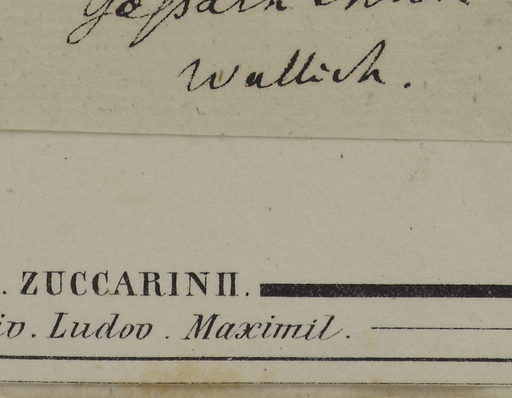 Wallich.
. ZUCCARINII.
iv. Ludov. Maximil.